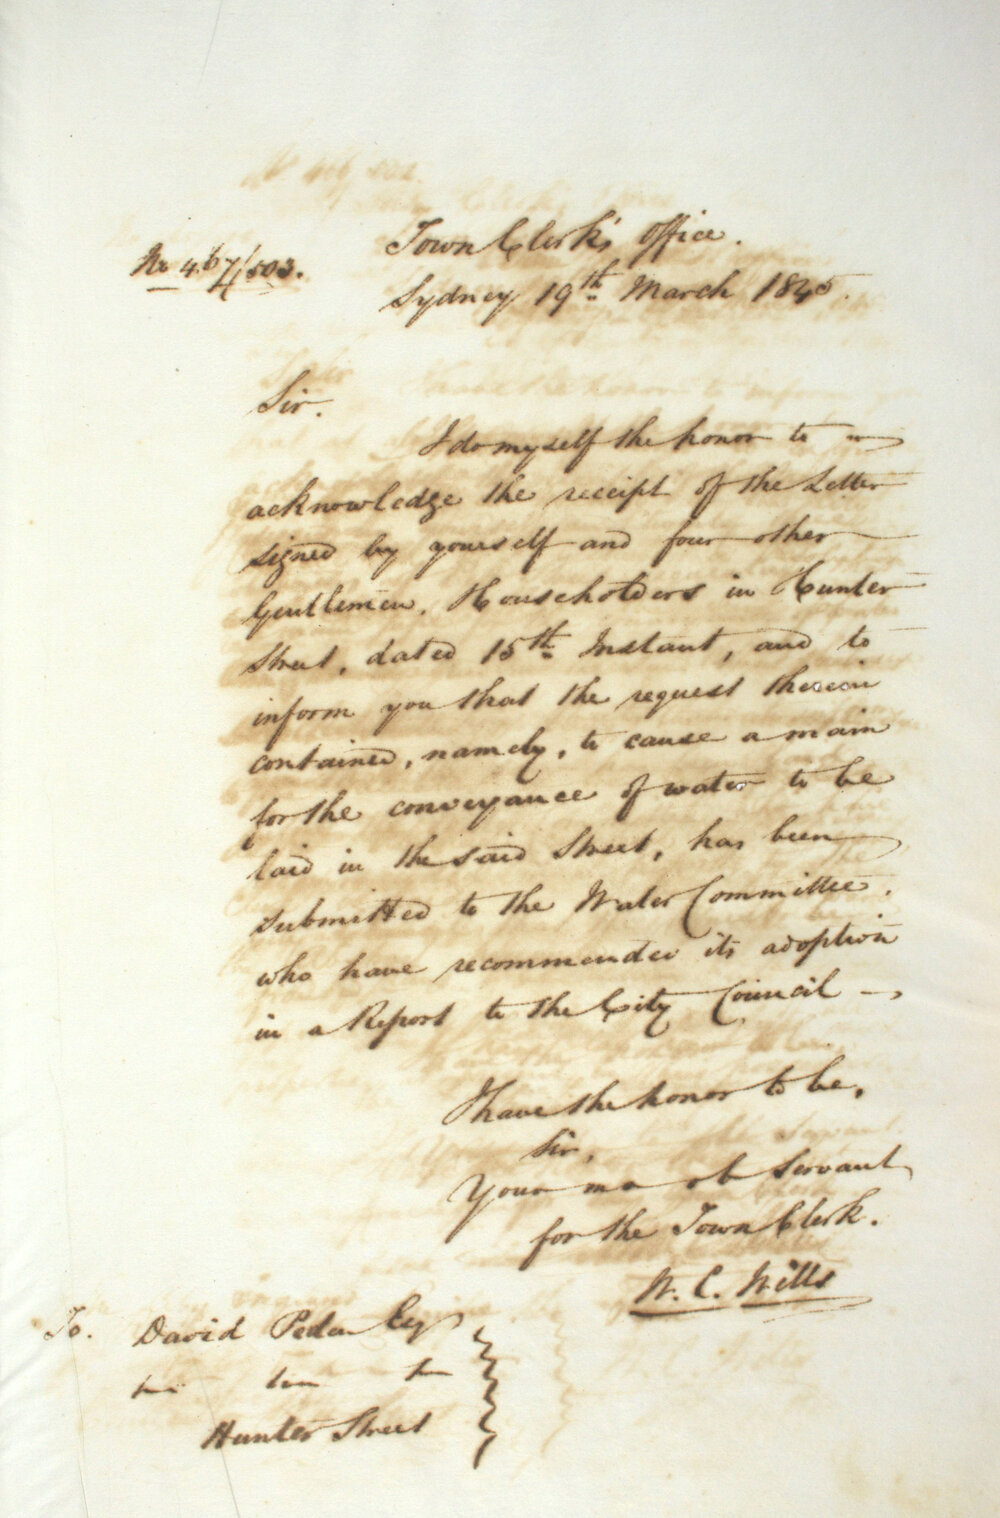 Town Clerk's Office.
No 467/503.
Sydney 19th March 1845.
Sir.
I do myself the honor to
acknowledge the receipt of the Letter
signed by yourself and four other
Gentlemen, Householders in Hunter
Street, dated 15th Instant, and to
inform you that the request therein
contained, namely, to cause a main
for the conveyance of water to be
laid in the said Street, has been
submitted to the Water Committee.
who have recommended its adoption
in a Report to the City Council
I have the honor to be,
Sir,
Your mo ob Servant
for the Town Clerk.
W. C. Wills
To. David Peden Esq
Hunter Street